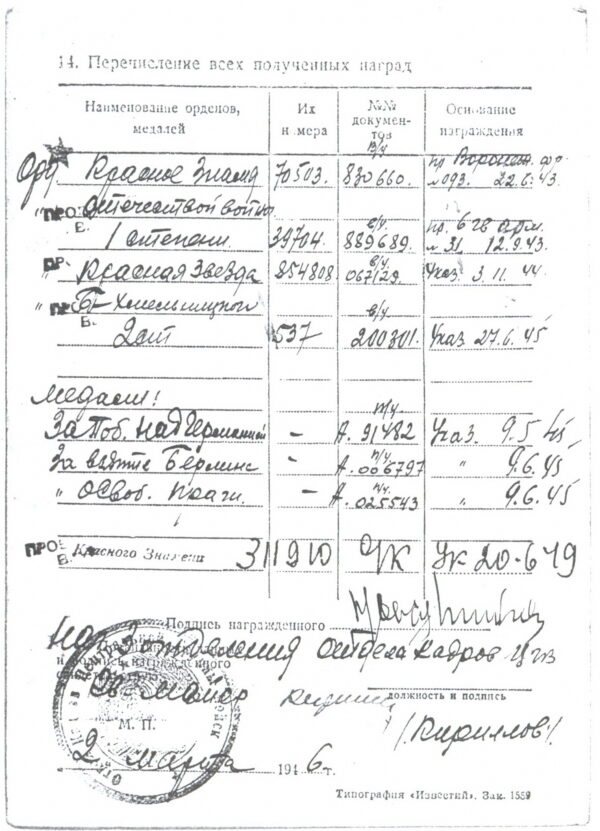 14. Перечисление всех полученных наград
Наименование орденов, медалей
Их номера
№№ документов
Основание награждения
Красное Знамя 70503. в/ч 830660. пр Ворон. фр. №093. 22.6.43.
Отечествой войны
1 степени. 39704. в/ч 889689. пр. 6 гв арм. №31. 12.9.43.
Красная Звезда 854808. в/ч 067129. Указ 3.11.44
Б-Хмельницкого
2 ст 537 в/ч 200301. Указ 27.6.45
Медали:
За Поб. над Германией - А. 91482 Указ. 9.5.45
За взятие Берлина - А. 006797 " 9.6.45
" Освоб. Праги. - А. 025543 " 9.6.45
ПРО В. Красного Знамени 311910 УК 20-6-49
Подпись награжденного
Нач 3 отделения отдела кадров ЦГВ
и подпись награжденного
гв. майор
должность и подпись
М. П.
/Кириллов/
2 Марта 1946 г.
Типография «Известий». Зак. 1559